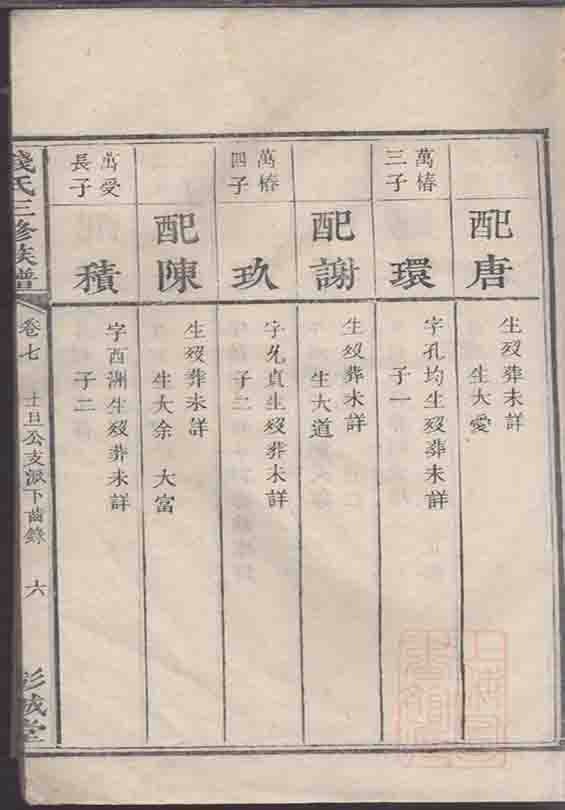 配唐
生歿葬未詳
生大愛
萬椿
三子
環
字孔均生歿葬未詳
子一
配謝
生歿葬未詳
生大道
萬椿
四子
玖
字允貞生歿葬未詳
子二
配陳
生歿葬未詳
生大余 大富
萬受
長子
積
字西湖生歿葬未詳
子二
錢氏三修族譜
卷七
士旦公支派下齒錄
六
彭城堂